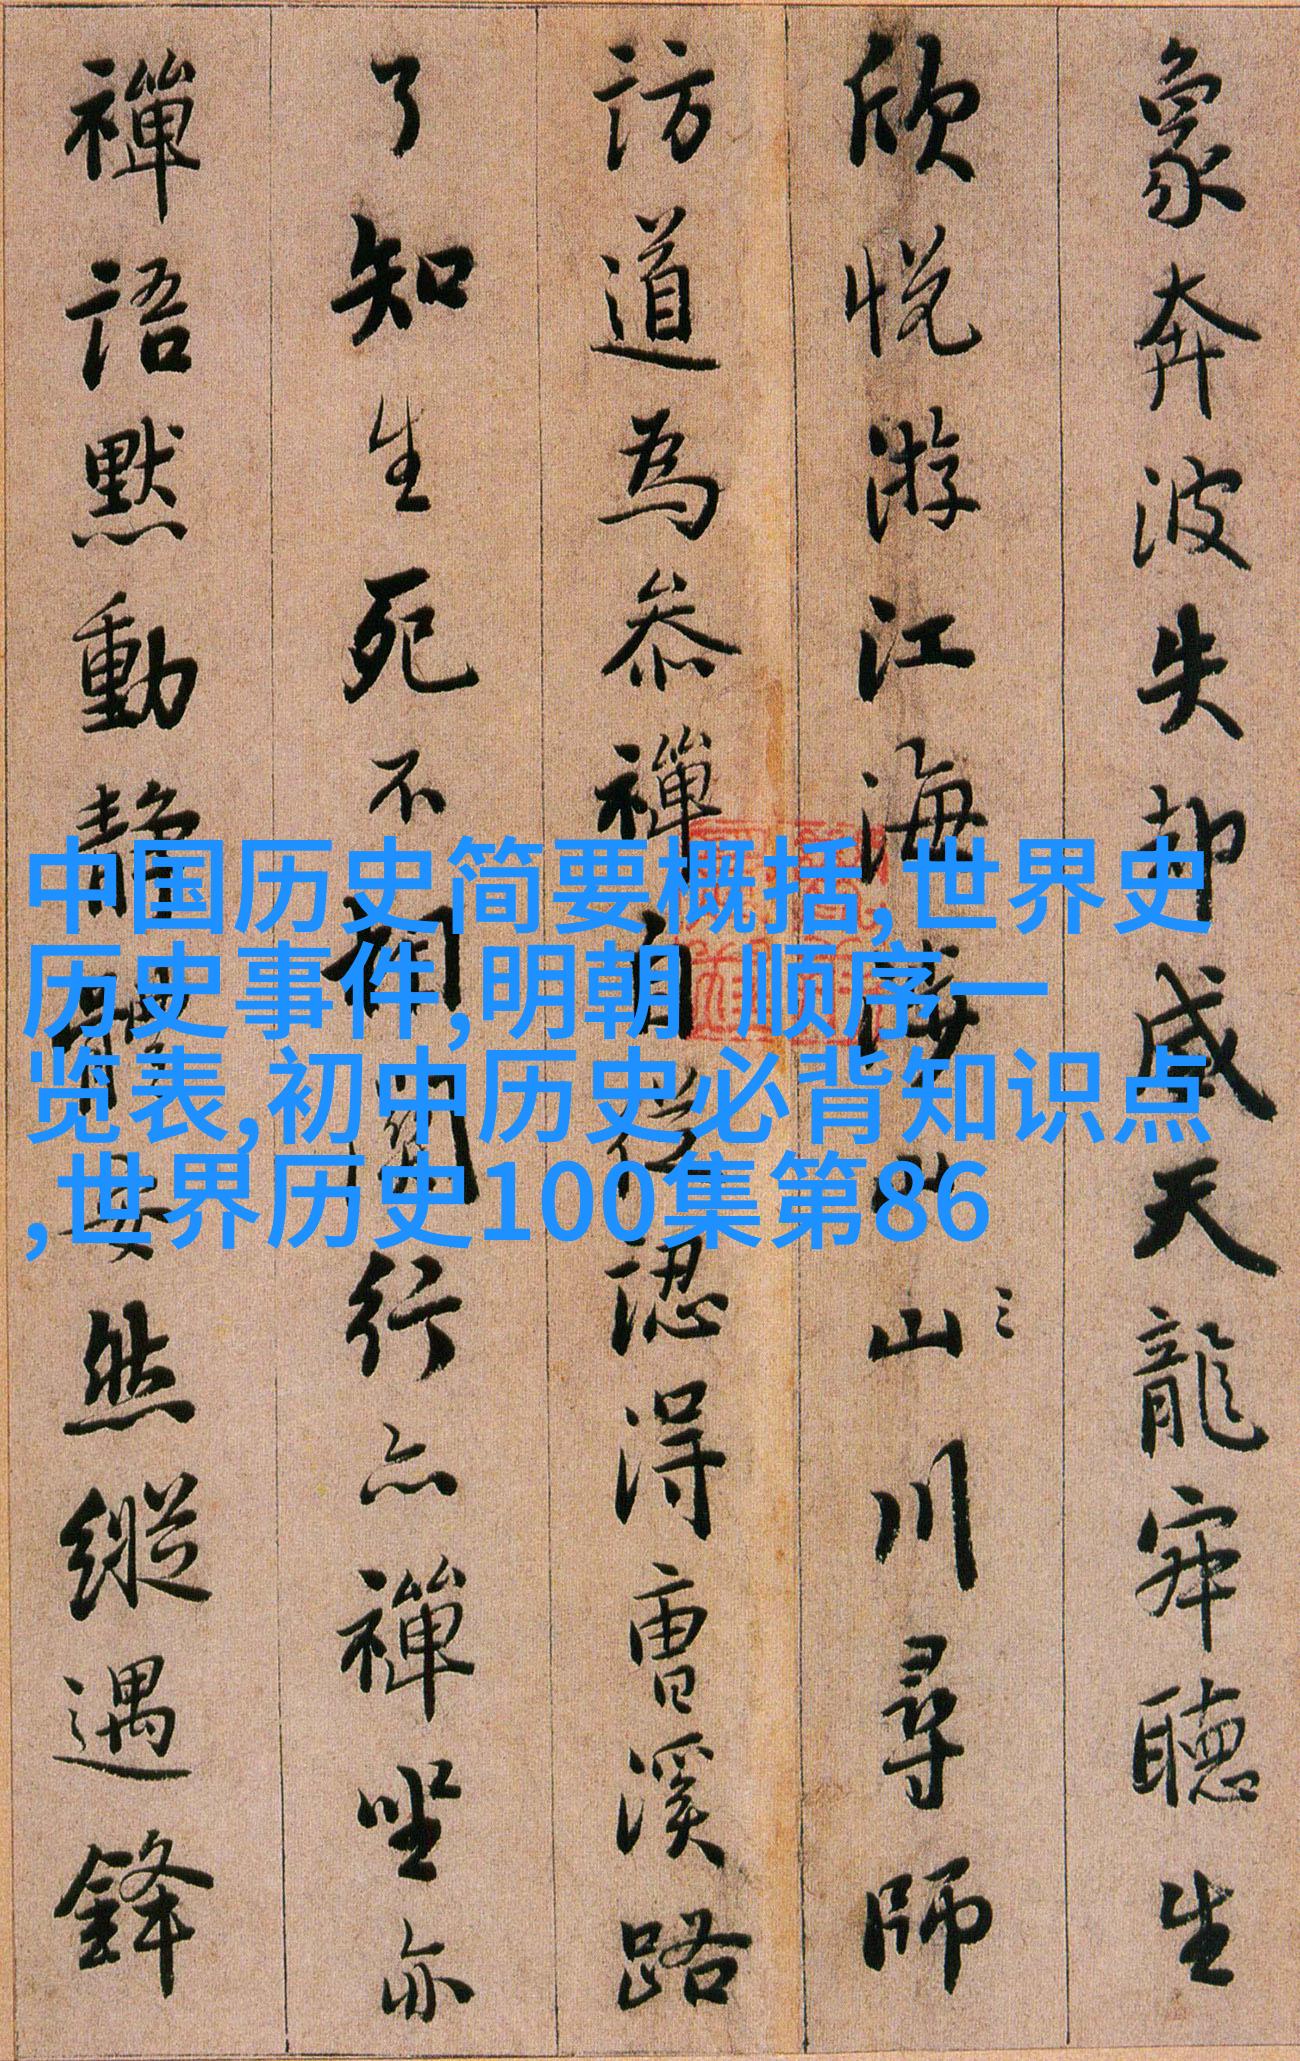 象奔波失却威天龍寂聽生
欣悅游江海山川尋師
訪道為叅禪自從認得曹溪路
了知生死不相關行亦禪坐亦
禪語默動靜體安然縱遇鋒
中国历史简要概括,世界史
历史事件,明朝 顺序一
览表,初中历史必背知识点
,世界历史100集第86